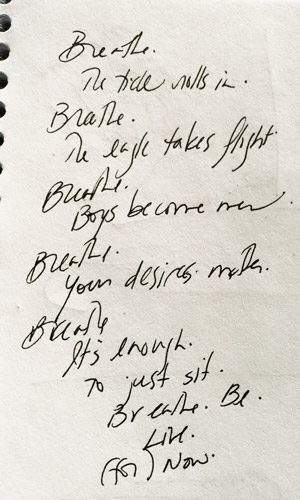 Breathe.
The tide rolls in.
Breathe.
The eagle takes flight.
Breathe.
Boys become men.
Breathe.
Your desires matter.
Breathe
It's enough.
To just sit.
Breathe. Be.
Live.
(for) Now.